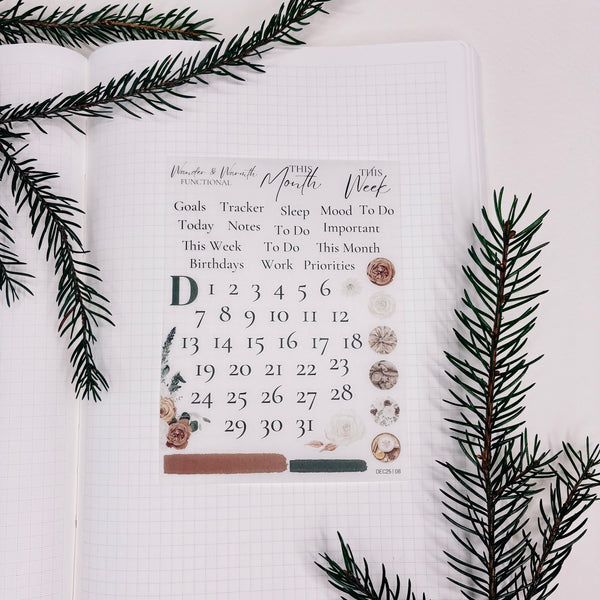 Wander & Warmth
FUNCTIONAL
THIS
Month
THIS
Week
Goals Tracker Sleep Mood To Do
Today Notes To Do Important
This Week To Do This Month
Birthdays Work Priorities
D 1 2 3 4 5 6
7 8 9 10 11 12
13 14 15 16 17 18
19 20 21 22 23
24 25 26 27 28
29 30 31
DEC25 | 08